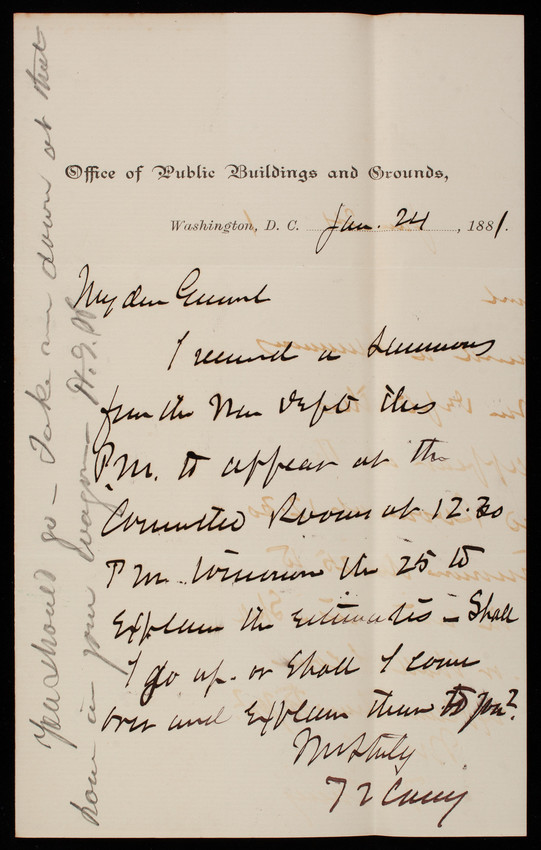 Office of Public Buildings and Grounds,
Washington, D. C. Jan. 24, 1881.
My dear General
I received a summons
from the War Dept this
P.M. to appear at the
Committee Room at 12.30
P.M. tomorrow the 25 to
explain the estimates – Shall
I go up or shall I come
over and explain them to you?
Truly
T L Casey
You should go – Take me down at that
hour in your wagon – H.G.W